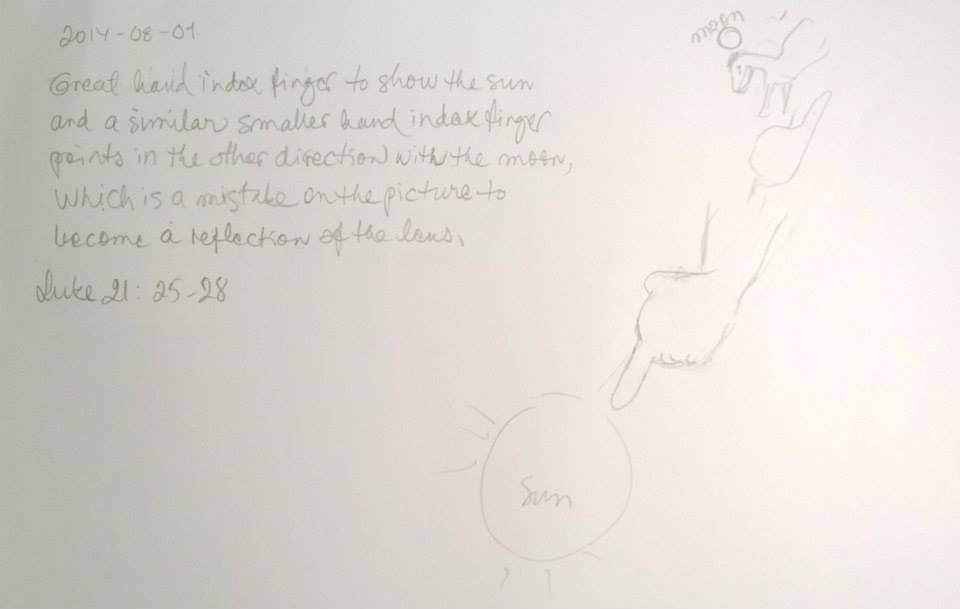 2014-08-01
Great hand index finger to show the sun
and a similar smaller hand index finger
points in the other direction with the moon,
which is a mistake on the picture to
become a reflection of the lens,
Luke 21: 25-28
moon
Sun